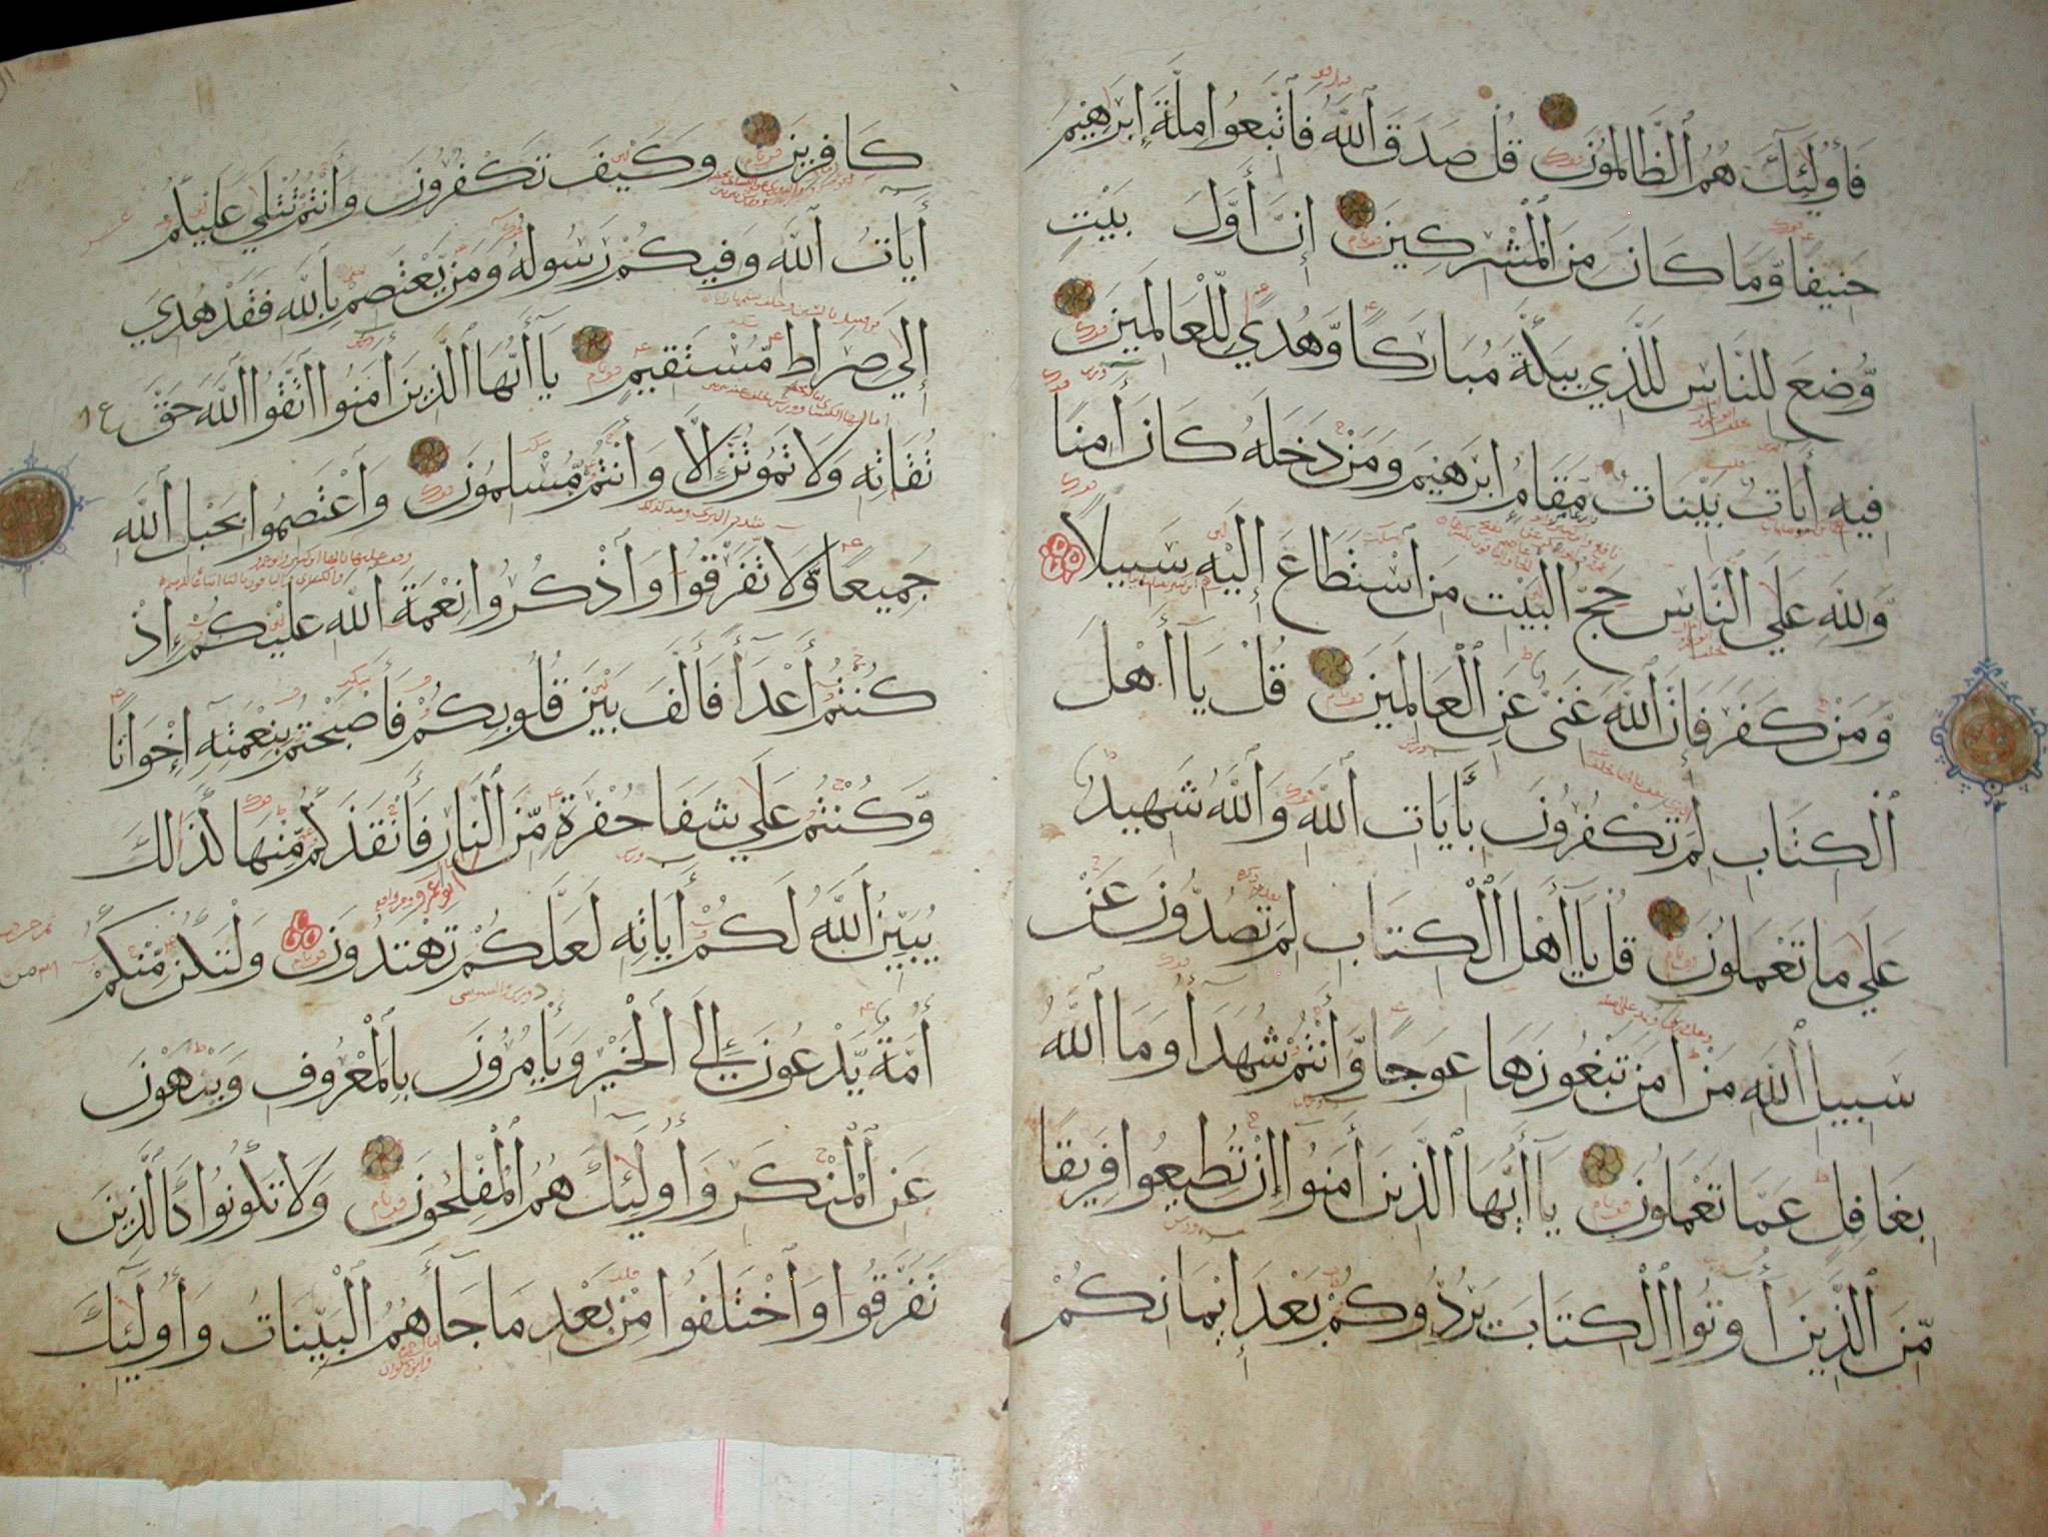 فَأُولَٰئِكَ هُمُ ٱلظَّالِمُونَ قُلْ صَدَقَ ٱللَّهُ فَاتَّبِعُوا مِلَّةَ إِبْرَهِيمَ
حَنِيفًا وَّمَا كَانَ مِنَ ٱلْمُشْرِكِينَ إِنَّ أَوَّلَ بَيْتٍ
وُّضِعَ لِلنَّاسِ لَلَّذِي بِبَكَّةَ مُبَارَكًا وَّهُدًي لِّلْعَالَمِينَ
فِيهِ أَيَاتٌ بَيِّنَاتٌ مَّقَامُ إِبْرَهِيمَ وَمَنْ دَخَلَهُ كَانَ أَمِنًا
وَّلِلَّهِ عَلَي النَّاسِ حَجُّ الْبَيْتِ مَنِ اسْتَطَاعَ إِلَيْهِ سَبِيلًا
وَّمَنْ كَفَرَ فَإِنَّ ٱللَّهَ غَنِيٌّ عَنِ ٱلْعَالَمِينَ قُلْ يَا أَهْلَ
ٱلْكِتَابِ لِمَ تَكْفُرُونَ بِأَيَاتِ ٱللَّهِ وَٱللَّهُ شَهِيدٌ
عَلَي مَا تَعْمَلُونَ قُلْ يَا أَهْلَ ٱلْكِتَابِ لِمَ تَصُدُّونَ عَنْ
سَبِيلِ ٱللَّهِ مَنْ أَمَنَ تَبْغُونَهَا عِوَجًا وَّأَنْتُمْ شُهَدَأُ وَمَا ٱللَّهُ
بِغَافِلٍ عَمَّا تَعْمَلُونَ يَا أَيُّهَا ٱلَّذِينَ أَمَنُوا إِنْ تُطِيعُوا فَرِيقًا
مِّنَ ٱلَّذِينَ أُوتُوا ٱلْكِتَابَ يَرُدُّوكُمْ بَعْدَ إِيمَانِكُمْ
كَافِرِينَ وَكَيْفَ تَكْفُرُونَ وَأَنْتُمْ تُتْلَي عَلَيْكُمْ
أَيَاتُ ٱللَّهِ وَفِيكُمْ رَسُولُهُ وَمَنْ يَّعْتَصِمْ بِاللَّهِ فَقَدْ هُدِيَ
إِلَي صِرَاطٍ مُّسْتَقِيمٍ يَا أَيُّهَا ٱلَّذِينَ أَمَنُوا اتَّقُوا ٱللَّهَ حَقَّ
تُقَاتِهِ وَلَا تَمُوتُنَّ إِلَّا وَأَنْتُمْ مُّسْلِمُونَ وَٱعْتَصِمُوا بِحَبْلِ ٱللَّهِ
جَمِيعًا وَّلَا تَفَرَّقُوا وَٱذْكُرُوا نِعْمَةَ ٱللَّهِ عَلَيْكُمْ إِذْ
كُنْتُمْ أَعْدَأً فَأَلَّفَ بَيْنَ قُلُوبِكُمْ فَأَصْبَحْتُمْ بِنِعْمَتِهِ إِخْوَانًا
وَّكُنْتُمْ عَلَي شَفَا حُفْرَةٍ مِّنَ ٱلنَّارِ فَأَنْقَذَكُمْ مِّنْهَا كَذَلِكَ
يُبَيِّنُ ٱللَّهُ لَكُمْ أَيَاتِهِ لَعَلَّكُمْ تَهْتَدُونَ وَلْتَكُنْ مِّنْكُمْ
أُمَّةٌ يَّدْعُونَ إِلَي ٱلْخَيْرِ وَيَأْمُرُونَ بِالْمَعْرُوفِ وَيَنْهَوْنَ
عَنِ ٱلْمُنْكَرِ وَأُولَٰئِكَ هُمُ ٱلْمُفْلِحُونَ وَلَا تَكُونُوا كَالَّذِينَ
تَفَرَّقُوا وَٱخْتَلَفُوا مِنْ بَعْدِ مَا جَأَهُمُ ٱلْبَيِّنَاتُ وَأُولَٰئِكَ